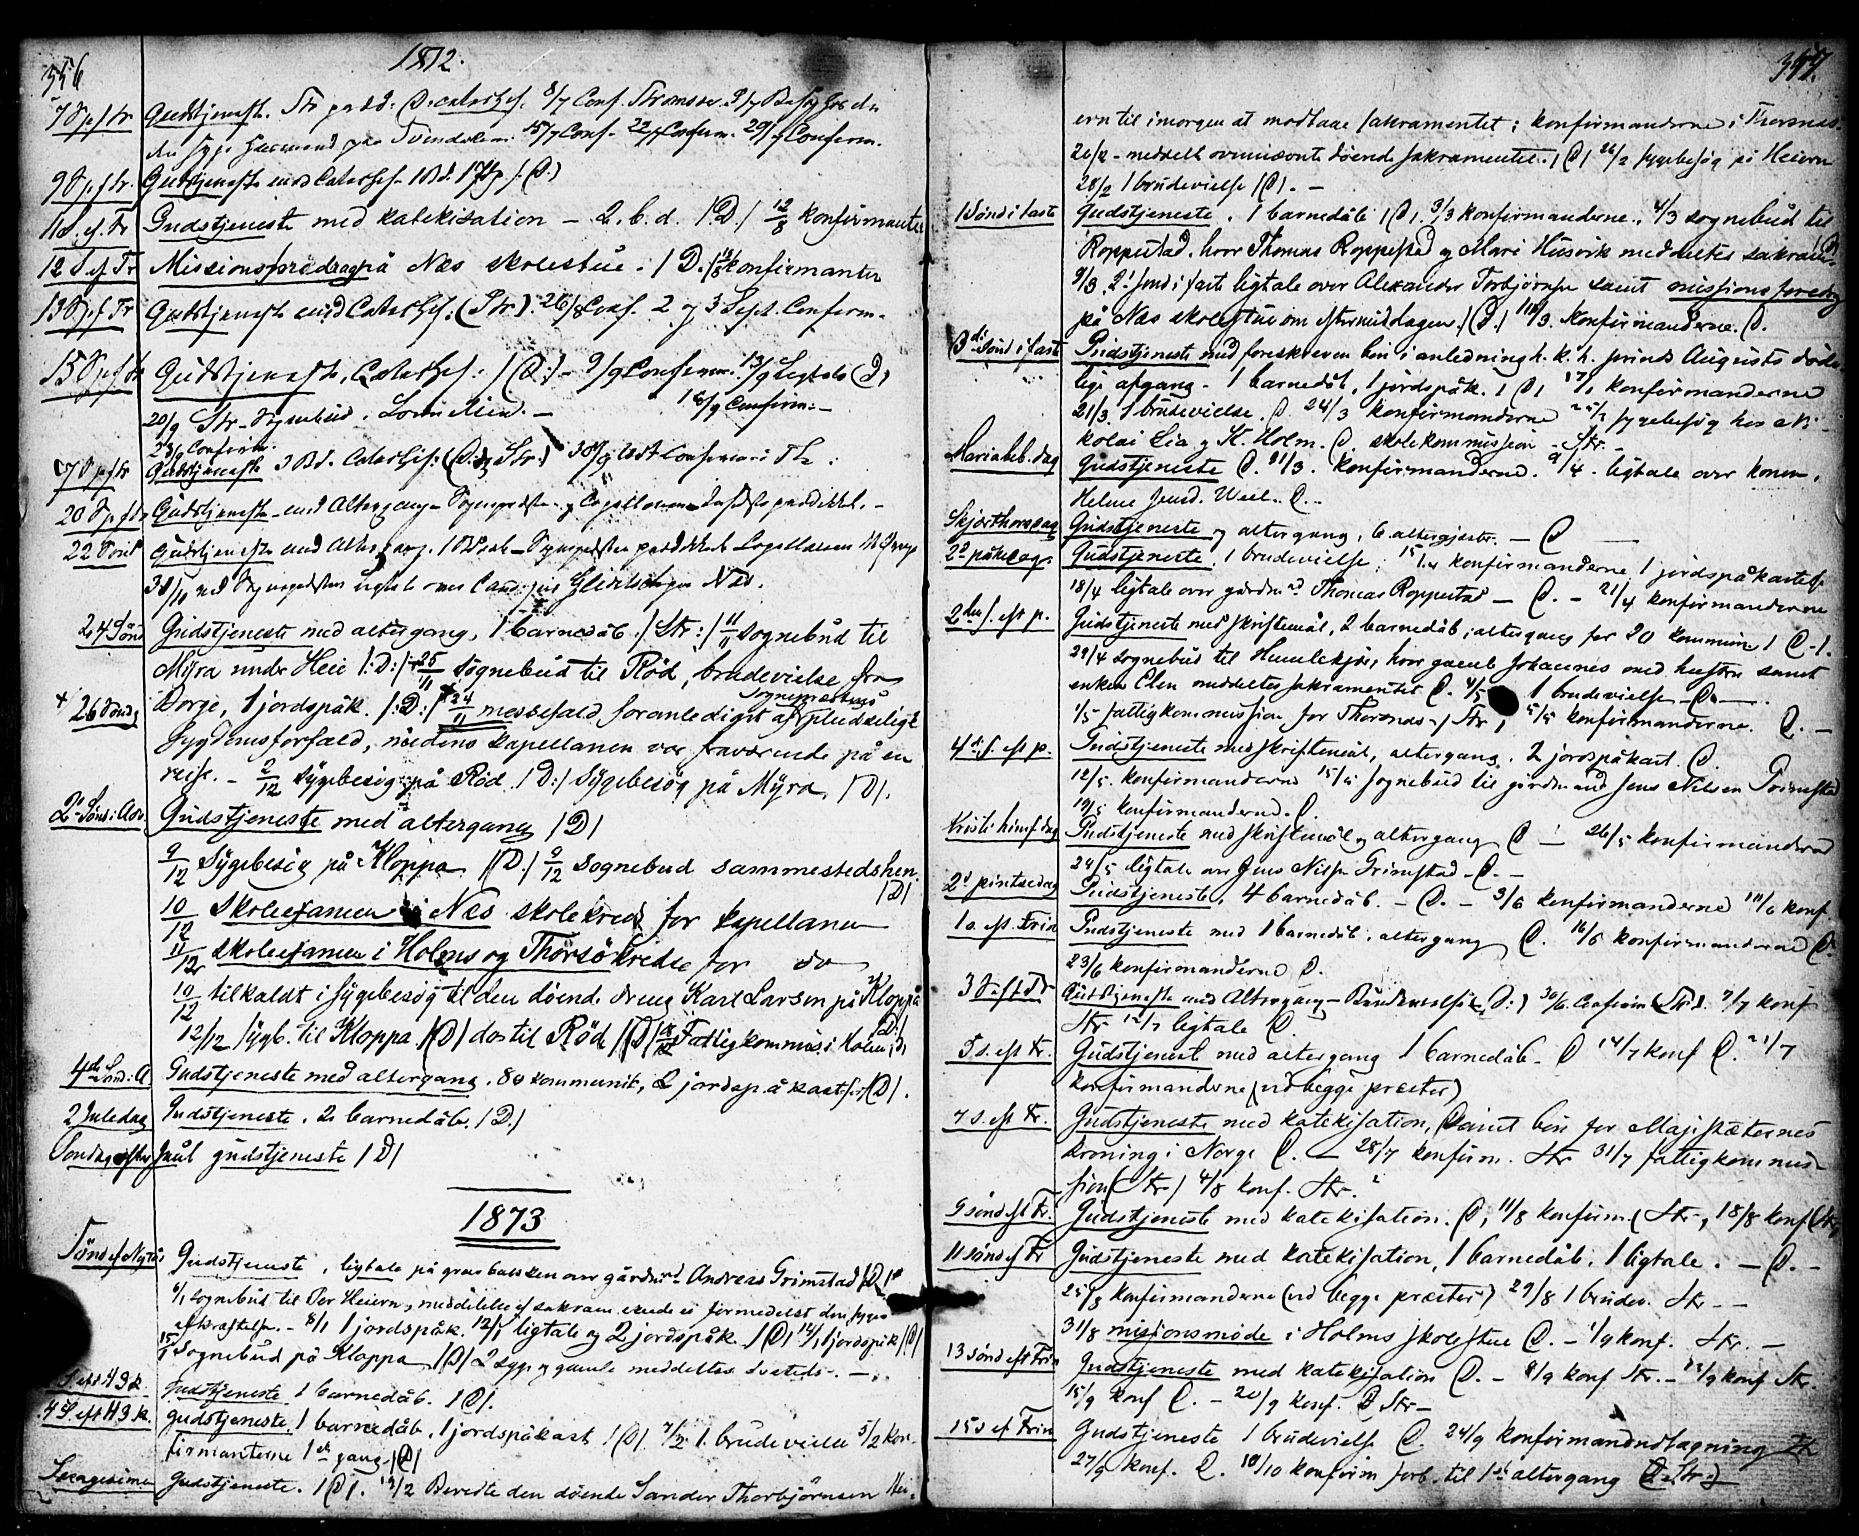 356
1872.
7 S. ef. tr Gudstjeneste. Str præd. D. catechis. 8/7 Conf. Strømsøe. 9/7 Besøg hos den
den syge 15/7 Conf. 22/7 Confirm. 29/7 Conferm.
9 S. ef. tr. Gudstjeneste med Catechis. 1 Bd. (D.)
11 S. ef. Tr Gudstjeneste med katekisation – 2. b. d. /:D:/ 12/8 konfirmanter
12 S. ef Tr Missionsforedrag på Næs skolestue. /D./ konfirmanter
13 S. ef Tr Gudstjeneste med Catechis. (Str.) 26/8 Conf. 2 og 3 Sept. Conferm.
15 S. ef tr Gudstjeneste, Catechis. /(D:) – 9/9 Conferm. 13/9 Ligtale (D)
20/9 Str. Sognebud. – 16/9 Confirm. –
23/9 Confirm.
17 S. ef tr Gudstjeneste 3 Bd. Catechis. (D. og Str.) 30/9 Confermer i Th.
20 S. ef tr Gudstjeneste med Altergang – Sognepresten og Capellanen
22 Sönd Gudstjeneste med Altergang. 1 Bdaab – Sognepresten prædikket Capellanen
30/10 ved Sognepresten Ligtale over Næs.
24 Sönd Gudstjeneste med altergang, 1 barnedåb. /:Str:/ 11/11 sognebud til
Myra under Heie /:D:/ 25/11 sognebud til Röd, brudevielse fra
+ 26 Sönd Borge, 1 jordspåk. /:D:/ 24/11 messefald, foranlediget af sogneprestens pludselige
sygdomsforfald, medens kapellanen var fraværende på en
reise. – 2/12 sygebesög på Röd. /D:/ Sygebesög på Myra, /D/.
2d Sönd: Adv. Gudstjeneste med altergang /D/
9/12 Sygebesög på Kloppa /(D./ 9/12 sognebud sammestedshen.
/D/
10/12 Skoleexamen i Næs skolekreds for kapellanen
11/12 skoleexamen i Holms og Thorsökredse for do
10/12 tilkaldt i sygebesög til den döende dreng Karl Larsen på Kloppa
/D:/
12/12 sygb. til Kloppa. /(D/ do til Röd /(D/ Fattigkommis. i Holm /D/
4de Sönd: A Gudstjeneste med altergang. 80 kommunik, 2 jordspåkastser /(D/.
2 Juledag Gudstjeneste, 2 barnedåb, /D./
Sondag efter Juul gudstjeneste /D/
1873
Sönd ef Nytår Gudstjeneste, ligtale på gravbakken over gårdmd Andreas Grimstad /D/
6/1 sognebud til Per Heiern, meddelelse af sakram. skede ei formedelst den syges
afkræftelse. – 8/1 1 jordspåk. 12/1 ligtale og 2 jordspåk. /(D/ 14/1 1 jordspåk /(D/
15/1 Sognebud på Kloppa /(D/ 2 syge og gamle meddeltes – –
S. eft H 3 k Gudstjeneste 1 barnedåb. /D/.
4 S. eft H 3 k. gudstjeneste. 1 barnedåb, 1 jordspåkast /(D/. 4/2 1 brudevielse 5/2 kon-
firmanterne 1ste gang. /(D/
Sexagesima Gudstjeneste. /(D/. 19/2 Beredte den döende Sander Thorbjörnsen Hei-
357.
ern til imorgen at modtaae sakramentet; konfirmanderne i Thorsnæs.
20/2 – meddelt ovennævnte döende sakramentet. /(D/ 26/2 sygebesög på Heiern
28/2 1 brudevielse /(D/. –
1 Sönd i faste Gudstjeneste. 1 barnedåb /(D/. 3/3 konfirmanderne. 4/3 sognebud til
Roppestad, hvor Thomas Roppestad og Mari Husvik meddeltes sakram. D
9/3. 2d sönd i faste ligtale over Alexander Torbjörnsen samt missionsforedrag
på Næs skolestue om eftermiddagen. /(D./ 10/3. konfirmanderne. D.
3die Sönd i faste Gudstjeneste med foreskreven bön i anledning h. k. h. prinds Augusts döde-
lige afgang – 1 barnedåb, 1 jordspåk. /(D/ 17/3 konfirmanderne
21/3. 1 brudevielse. D. 24/3 konfirmanderne 25/3 sygebesög hos Ni-
kolai Lia og K. Holm. D. skolekommission – Str.
Mariæ beb. dag Gudstjeneste D. 31/3. konfirmanderne. 4/4. ligtale over konen.
Helene D. –
Skjærthorsdag Gudstjeneste og altergang, 6 altergjester. – D
2d påskedag Gudstjeneste. 1 brudevielse. 15/4 konfirmanderne 1 jordspåkastelse
18/4 ligtale over gårdmd Thomas Roppestad – D. – 21/4 konfirmanderne
2den S. eft p. Gudstjeneste med skriftemål, 2 barnedåb, altergang for 20 kommun /D./.
29/4 sognebud til Humlekjær, hvor gamle Johannes med hustru samt
enken Elen meddeltes sakramentet D. 4/5 1 brudevielse D. –
1/5 fattigkommission for Thorsnæs – Str, 5/5 konfirmanderne. D. –
4de S. eft p. Gudstjeneste med skriftemål, altergang. 2 jordspåkast. D.
12/5. konfirmanderne 15/5 sognebud til gårdmand Jens Nilsen Grimstad
19/5 konfirmanderne. D.
Kristi himf dag Gudstjeneste med skriftemål og altergang D – 26/5 konfirmanderne
24/5 ligtale over Jens Nilsen Grimstad D. –
2d pintsedag Gudstjeneste, 4 barnedåb. – D. – 3/6 konfirmanderne 10/6 konf
1 s. eft. Trin Gudstjeneste med 1 barnedåb. altergang D. 16/6 konfirmanderne D.
23/6 konfirmanderne D.
3 S. eft Tr Gudstjeneste med Altergang – Brudevielse (D:) 30/6. Confirm (Str). 7/7 konf
Str 12/7 ligtale D.
5 s. eft tr. Gudstjenest med altergang 1 barnedåb – D 14/7 konf D. 21/7
konfirmanderne (ved begge præster)
7 s. eft tr. Gudstjeneste med katekisation, (samt bön for Majestæternes
kroning i Norge D. – 28/7 konfirm. Str 31/7 fattigkommis-
sion (Str.) 4/8 konf. Str.
9 sönd eft Tr. Gudstjeneste med katekisation. D, 11/8 konfirm. (Str –, 18/8 konf (Str)
11 sönd ef Tr Gudstjeneste med katekisation, 1 barnedåb. 1 ligtale. – D. –
25/8 konfirmanderne (ved begge præster) 29/8 1 brudev. Str – –
31/8 misjonsmöde i Holms skolestue D. – 1/9 konf. Str. –
13 sönd eft Trin Gudstjeneste med katekisation D. – 8/9 konf Str. – 12/9 konf Str.
15/9 konf D. – 20/9 konf. D Str –
15 s ef Trin Gudstjeneste 1 brudevielse D. 24/9 konfirmandudtagning Th
27/9 konf. D. 10/10 konfirm forb. til 1ste altergang (D. Str.)